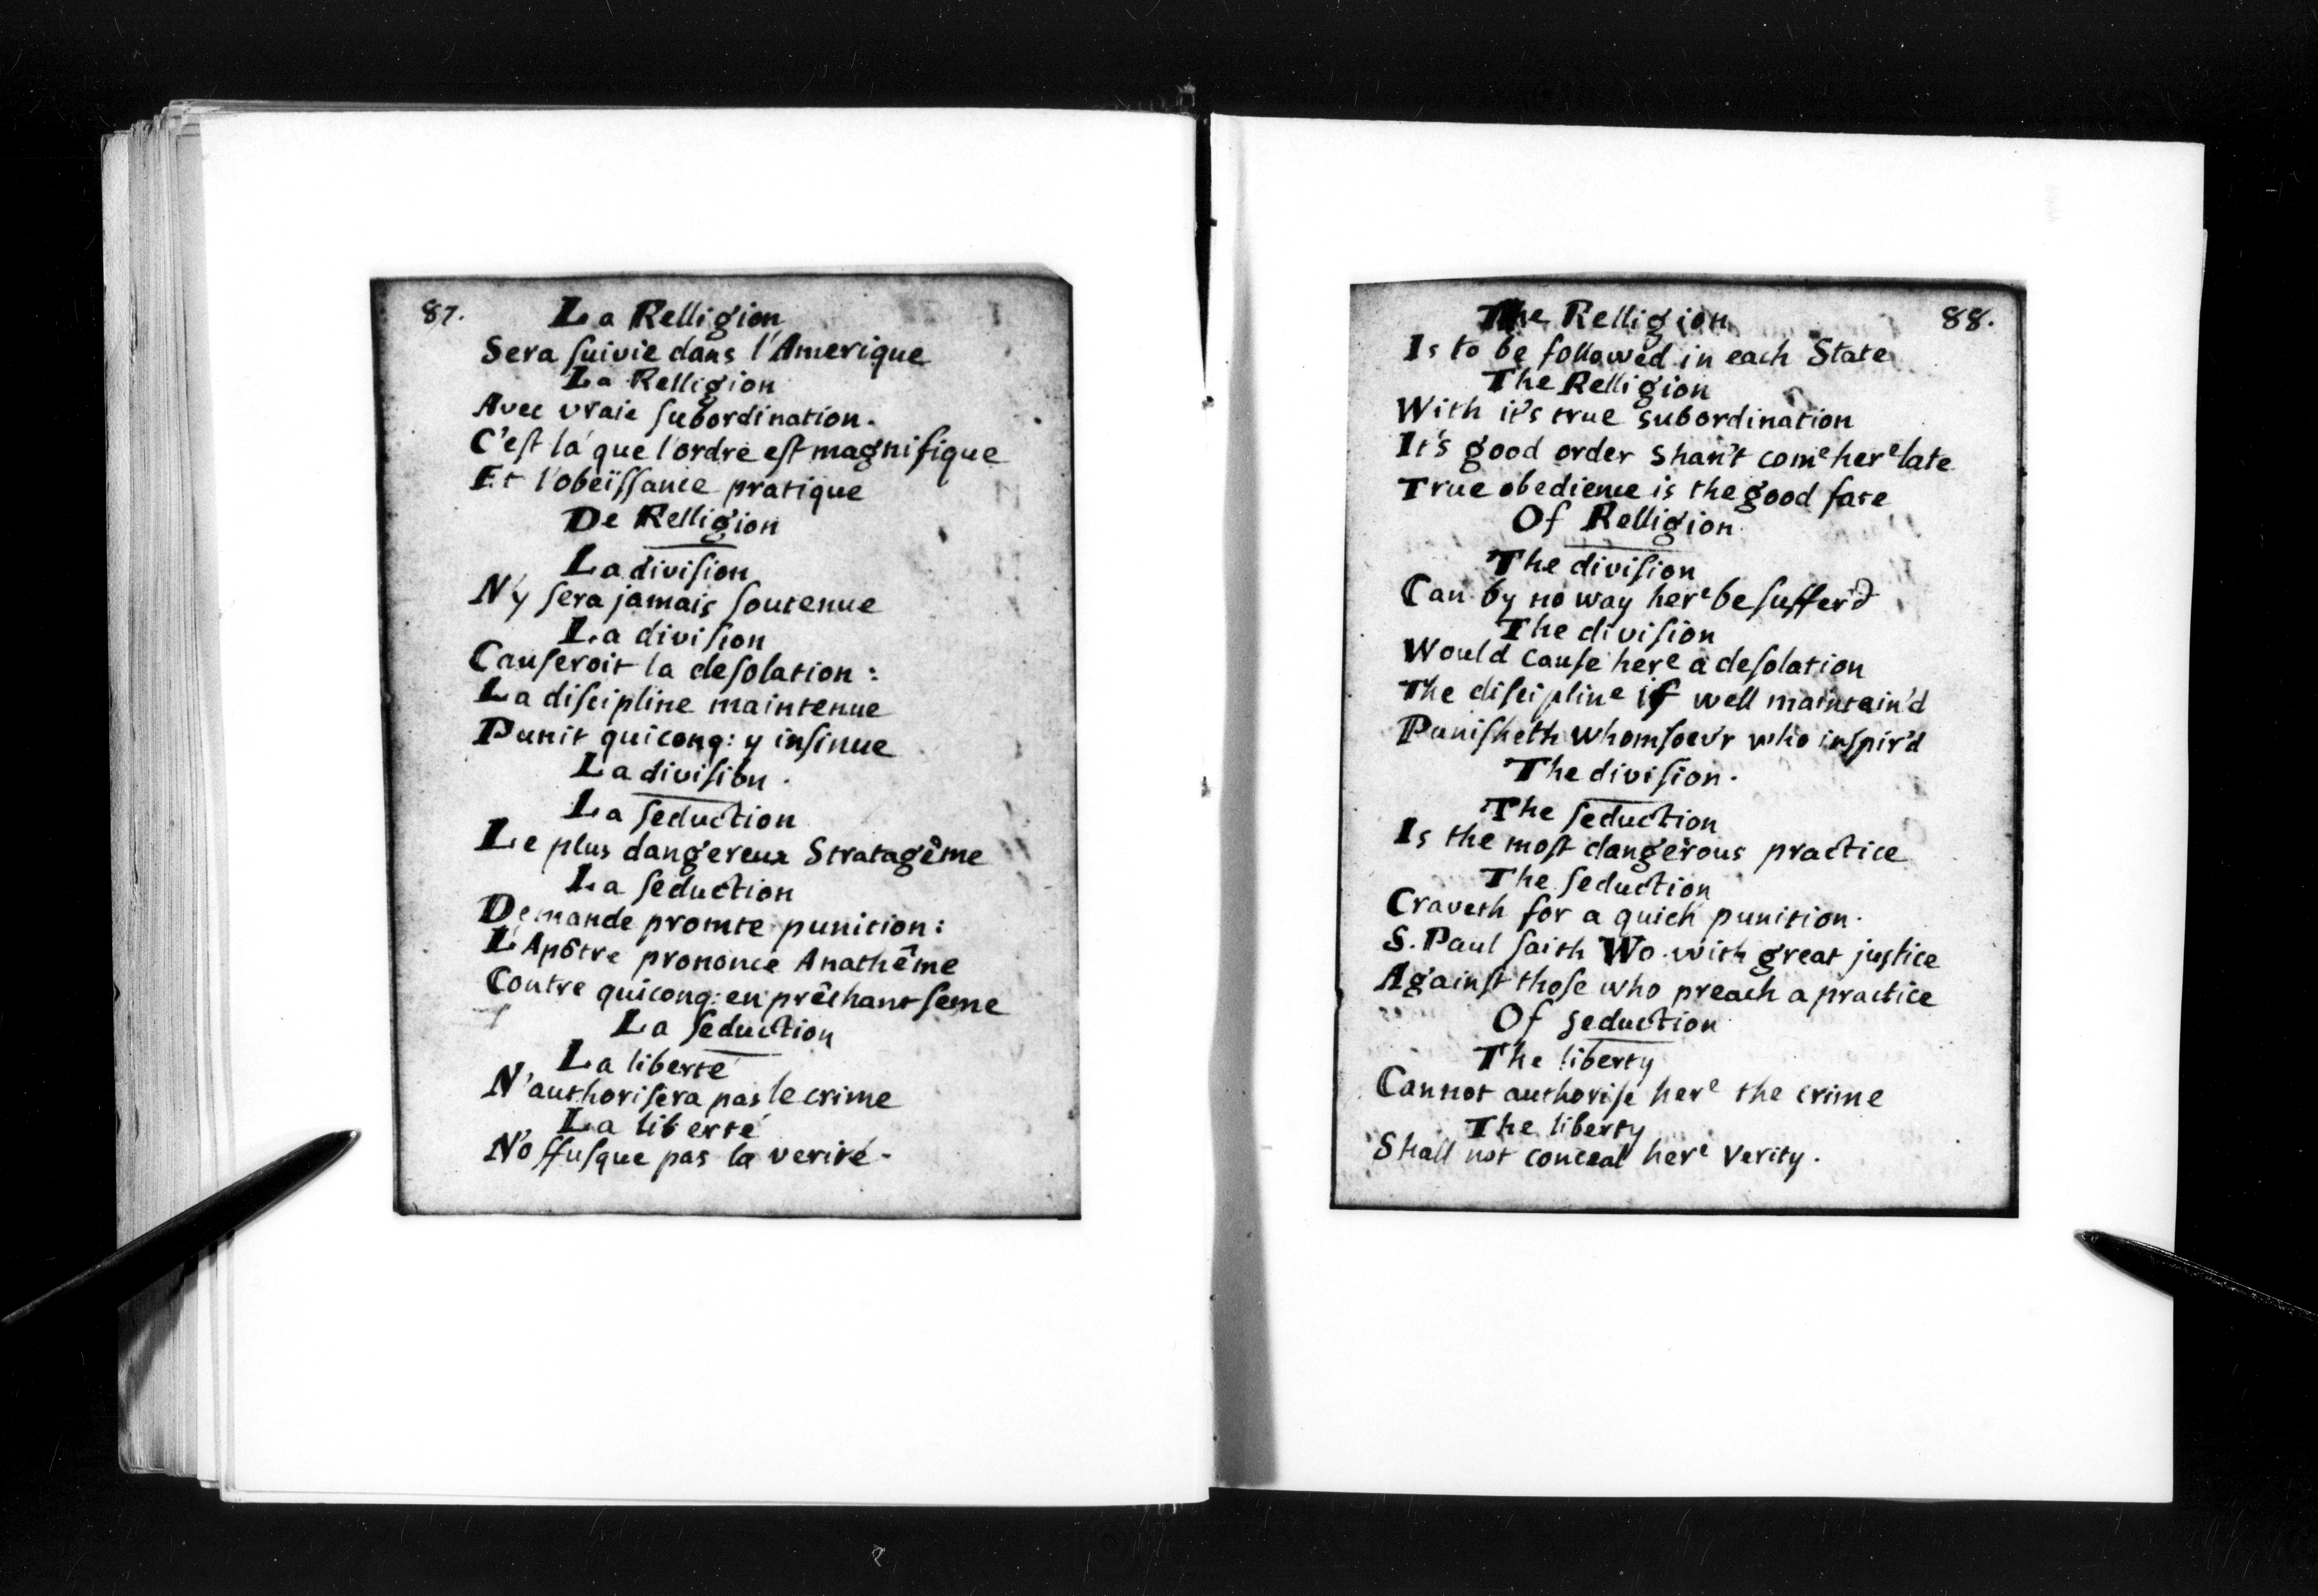 87.
La Relligion
Sera ſuivie dans l'Amerique
La Relligion
Avec vraie ſubordination.
C'eſt là que l'ordre eſt magnifique
Et l'obeïſſance pratique
De Relligion
La diviſion
N'y ſera jamais ſoutenue
La diviſion
Cauſeroit la deſolation:
La diſcipline maintenue
Punit quiconq: y inſinue
La diviſion.
La ſeduction
Le plus dangereux Stratagême
La ſeduction
Demande promte punition:
L'Apôtre prononce Anathême
Contre quiconq: en prêchant ſeme
La ſeduction
La liberté
N'authoriſera pas le crime
La liberté
N'offuſque pas la verité.
88.
The Relligion
Is to be followed in each State
The Relligion
With it's true subordination
It's good order shan't come here late
True obedience is the good fate
Of Relligion.
The diviſion
Can by no way here be ſuffer'd
The diviſion
Would cauſe here a deſolation
The diſcipline if well maintain'd
Puniſheth whomſoev'r who inſpir'd
The diviſion.
The ſeduction
Is the moſt dangerous practice
The ſeduction
Craveth for a quick punition.
S. Paul ſaith Wo with great juſtice
Againſt thoſe who preach a practice
Of ſeduction
The liberty
Cannot authoriſe here the crime
The liberty
Shall not conceal here verity.